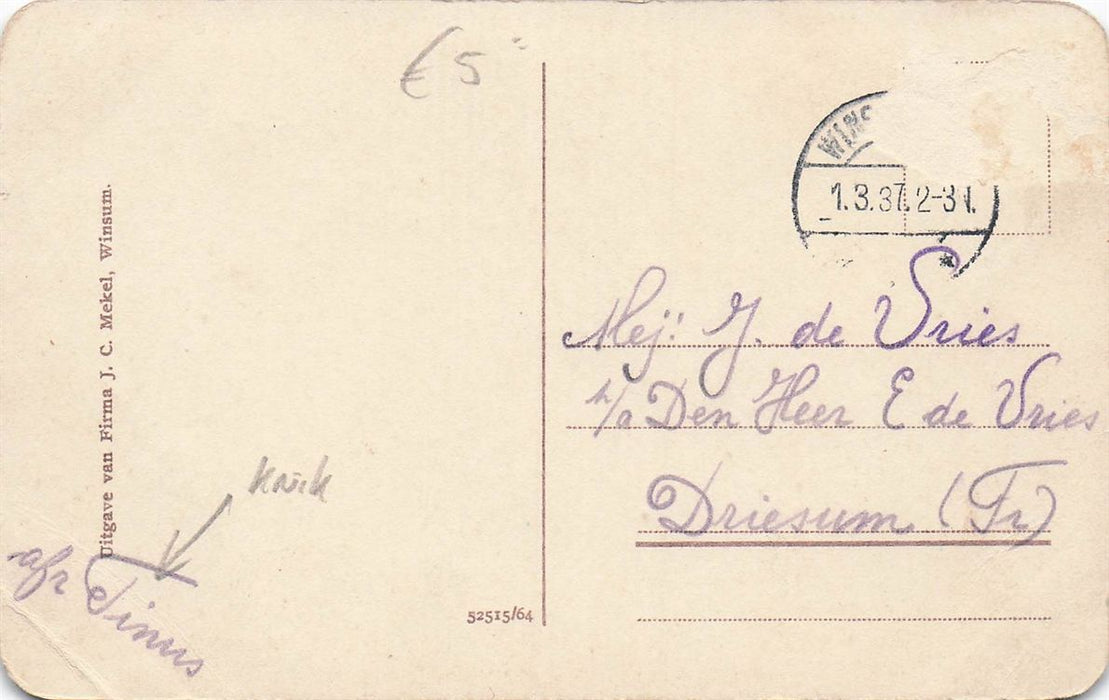 € 5
WINS
1.3.37. 2-3 N.
Mej: J. de Vries
p/a Den Heer E de Vries
Driesum (Fr)
Uitgave van Firma J. C. Mekel, Winsum.
knik
afz Tinus
52515/64